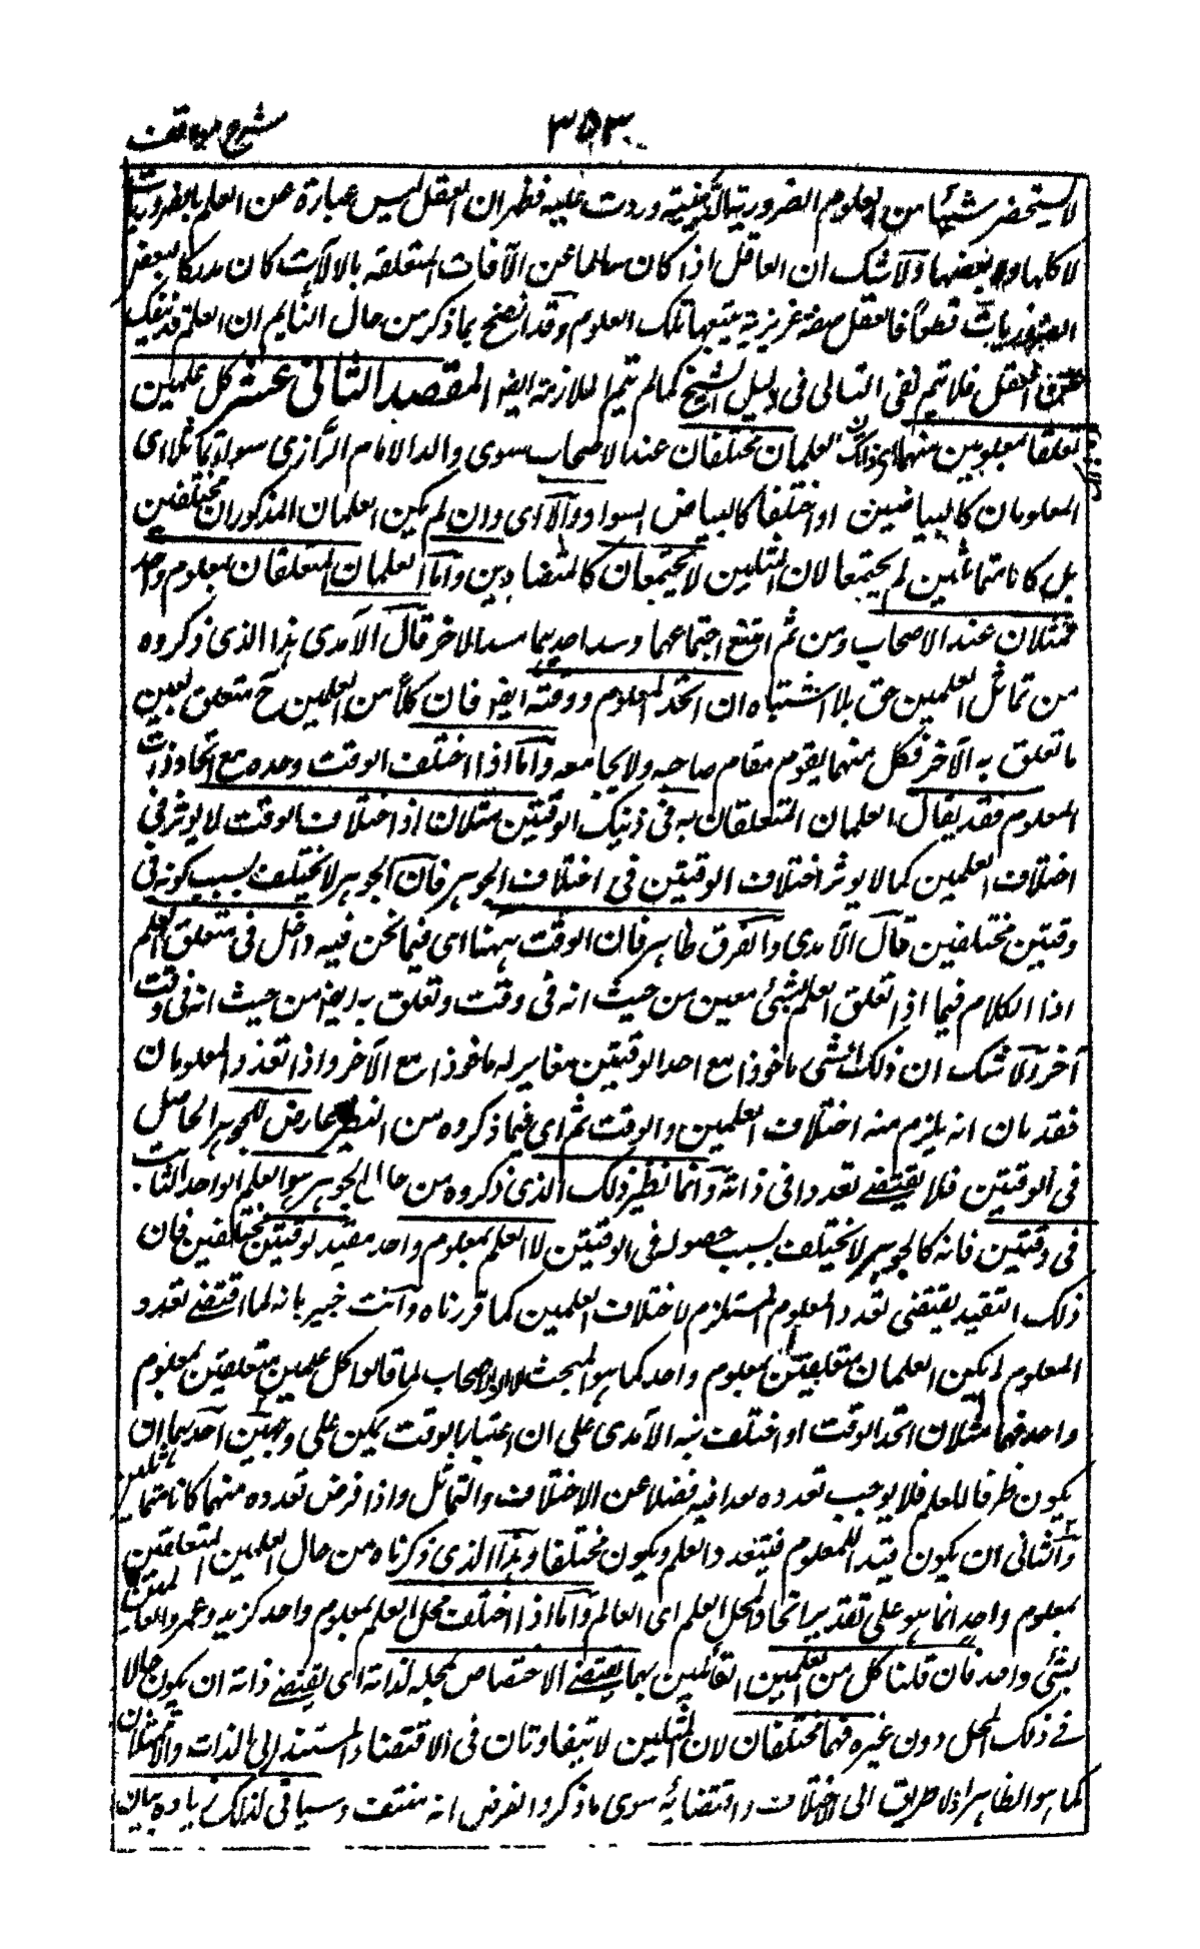 شرح مواقف
٣٥٣
لا يستحضر شيئا من العلوم الضرورية لدهشة وردت عليه فظهر ان العقل ليس عبارة عن العلم بالضروريات
لا كلها ولا بعضها ولا شك ان العاقل اذا كان سالما عن الآفات المتعلقة بالآلات كان مدركا لبعض
الضروريات قطعا فالعقل صفة غريزية يتبعها تلك العلوم وقد اتضح بما ذكر من حال النايم ان العلم قد ينفك
عن العقل فلا يتم نفى التالى فى دليل الشيخ كما لم يتم الملازمة ايضا المقصد الثانى عشر كل علمين
تعلقا بمعلومين فهما اى ذلك العلمان مختلفان عند الاصحاب سوى والد الامام الرازى سواء تماثلا اى
المعلومان كالبياضين او اختلفا كالبياض السواد والا اى وان لم يكن العلمان المذكوران مختلفين
بل كانا متماثلين لم يجتمعا لان المثلين لا يجتمعان كالمتضادين واما العلمان المتعلقان بمعلوم واحد
فمثلان عند الاصحاب ومن ثم امتنع اجتماعهما وسد احدهما مسد الآخر قال الآمدى هذا الذى ذكروه
من تماثل العلمين حق بلا اشتباه ان اتحد المعلوم ووقته ايضا فان كلا من العلمين ح متعلق بعين
ما تعلق به الآخر فكل منهما يقوم مقام صاحبه ولا يجامعه واما اذا اختلف الوقت وحده مع اتحاد ذات
المعلوم فقد يقال العلمان المتعلقان به فى ذينك الوقتين مثلان اذ اختلاف الوقت لا يوثر فى
اختلاف العلمين كما لا يوثر اختلاف الوقتين فى اختلاف الجوهر فان الجوهر لا يختلف بسبب كونه فى
وقتين مختلفين قال الآمدى والفرق ظاهر فان الوقت ههنا اى فيما نحن فيه داخل فى متعلق العلم
اذ الكلام فيما اذا تعلق العلم بشئ معين من حيث انه فى وقت وتعلق به ايضا من حيث انه فى وقت
آخر ولا شك ان ذلك الشى ماخوذا مع احد الوقتين مغاير له ماخوذا مع الآخر واذا تعدد المعلومان
فقد بان انه يلزم منه اختلاف العلمين والوقت ثم اى فيما ذكروه من النظير عارض للجوهر الحاصل
فى الوقتين فلا يقتضے تعددا فى ذاته وانما نظير ذلك الذى ذكروه من حال الجوهر هو العلم الواحد الثابت
فى وقتين فانه كالجوهر لا يختلف بسبب حصوله فى الوقتين لا العلم بمعلوم واحد مقيد بوقتين مختلفين فان
ذلك التقييد يقتضى تعدد المعلوم المستلزم لاختلاف العلمين كما قررناه وانت خبير بانه لما اقتضے تعدد
المعلوم لم يكن العلمان متعلقين بمعلوم واحد كما هو المبحث والاصحاب لما قالوا كل علمين متعلقين بمعلوم
واحد فهما مثلان اتحد الوقت او اختلف نبه الآمدى على ان اعتبار الوقت يكون على وجهين احدهما ان
يكون ظرفا للعلم فلا يوجب تعدده تعددا فيه فضلا عن الاختلاف والتماثل واذا فرض تعدده منهما كانا متماثلين
والثانى ان يكون قيدا للمعلوم فيتعدد العلم ويكون مختلفا وهذا الذى ذكرناه من حال العلمين المتعلقين
بمعلوم واحد انما هو على تقدير اتحاد المحل العلم اى العالم واما اذا اختلف محل العلم بمعلوم واحد كزيد وعمرو العالمين
بشئ واحد فان قلنا كل من العلمين القائمين بهما يقتضے الاختصاص بمحله لذاته اى يقتضے ذاته ان يكون حالا
فے ذلك المحل دون غيره فهما مختلفان لان المثلين لا يتفاوتان فى الاقتضاء المستند الى الذات والا فمثلان
كما هو الظاهر اذ لا طريق الى الاختلاف واقتضائه سوى ما ذكر والفرض انه منتف وسياتى لذلك زيادة بيان